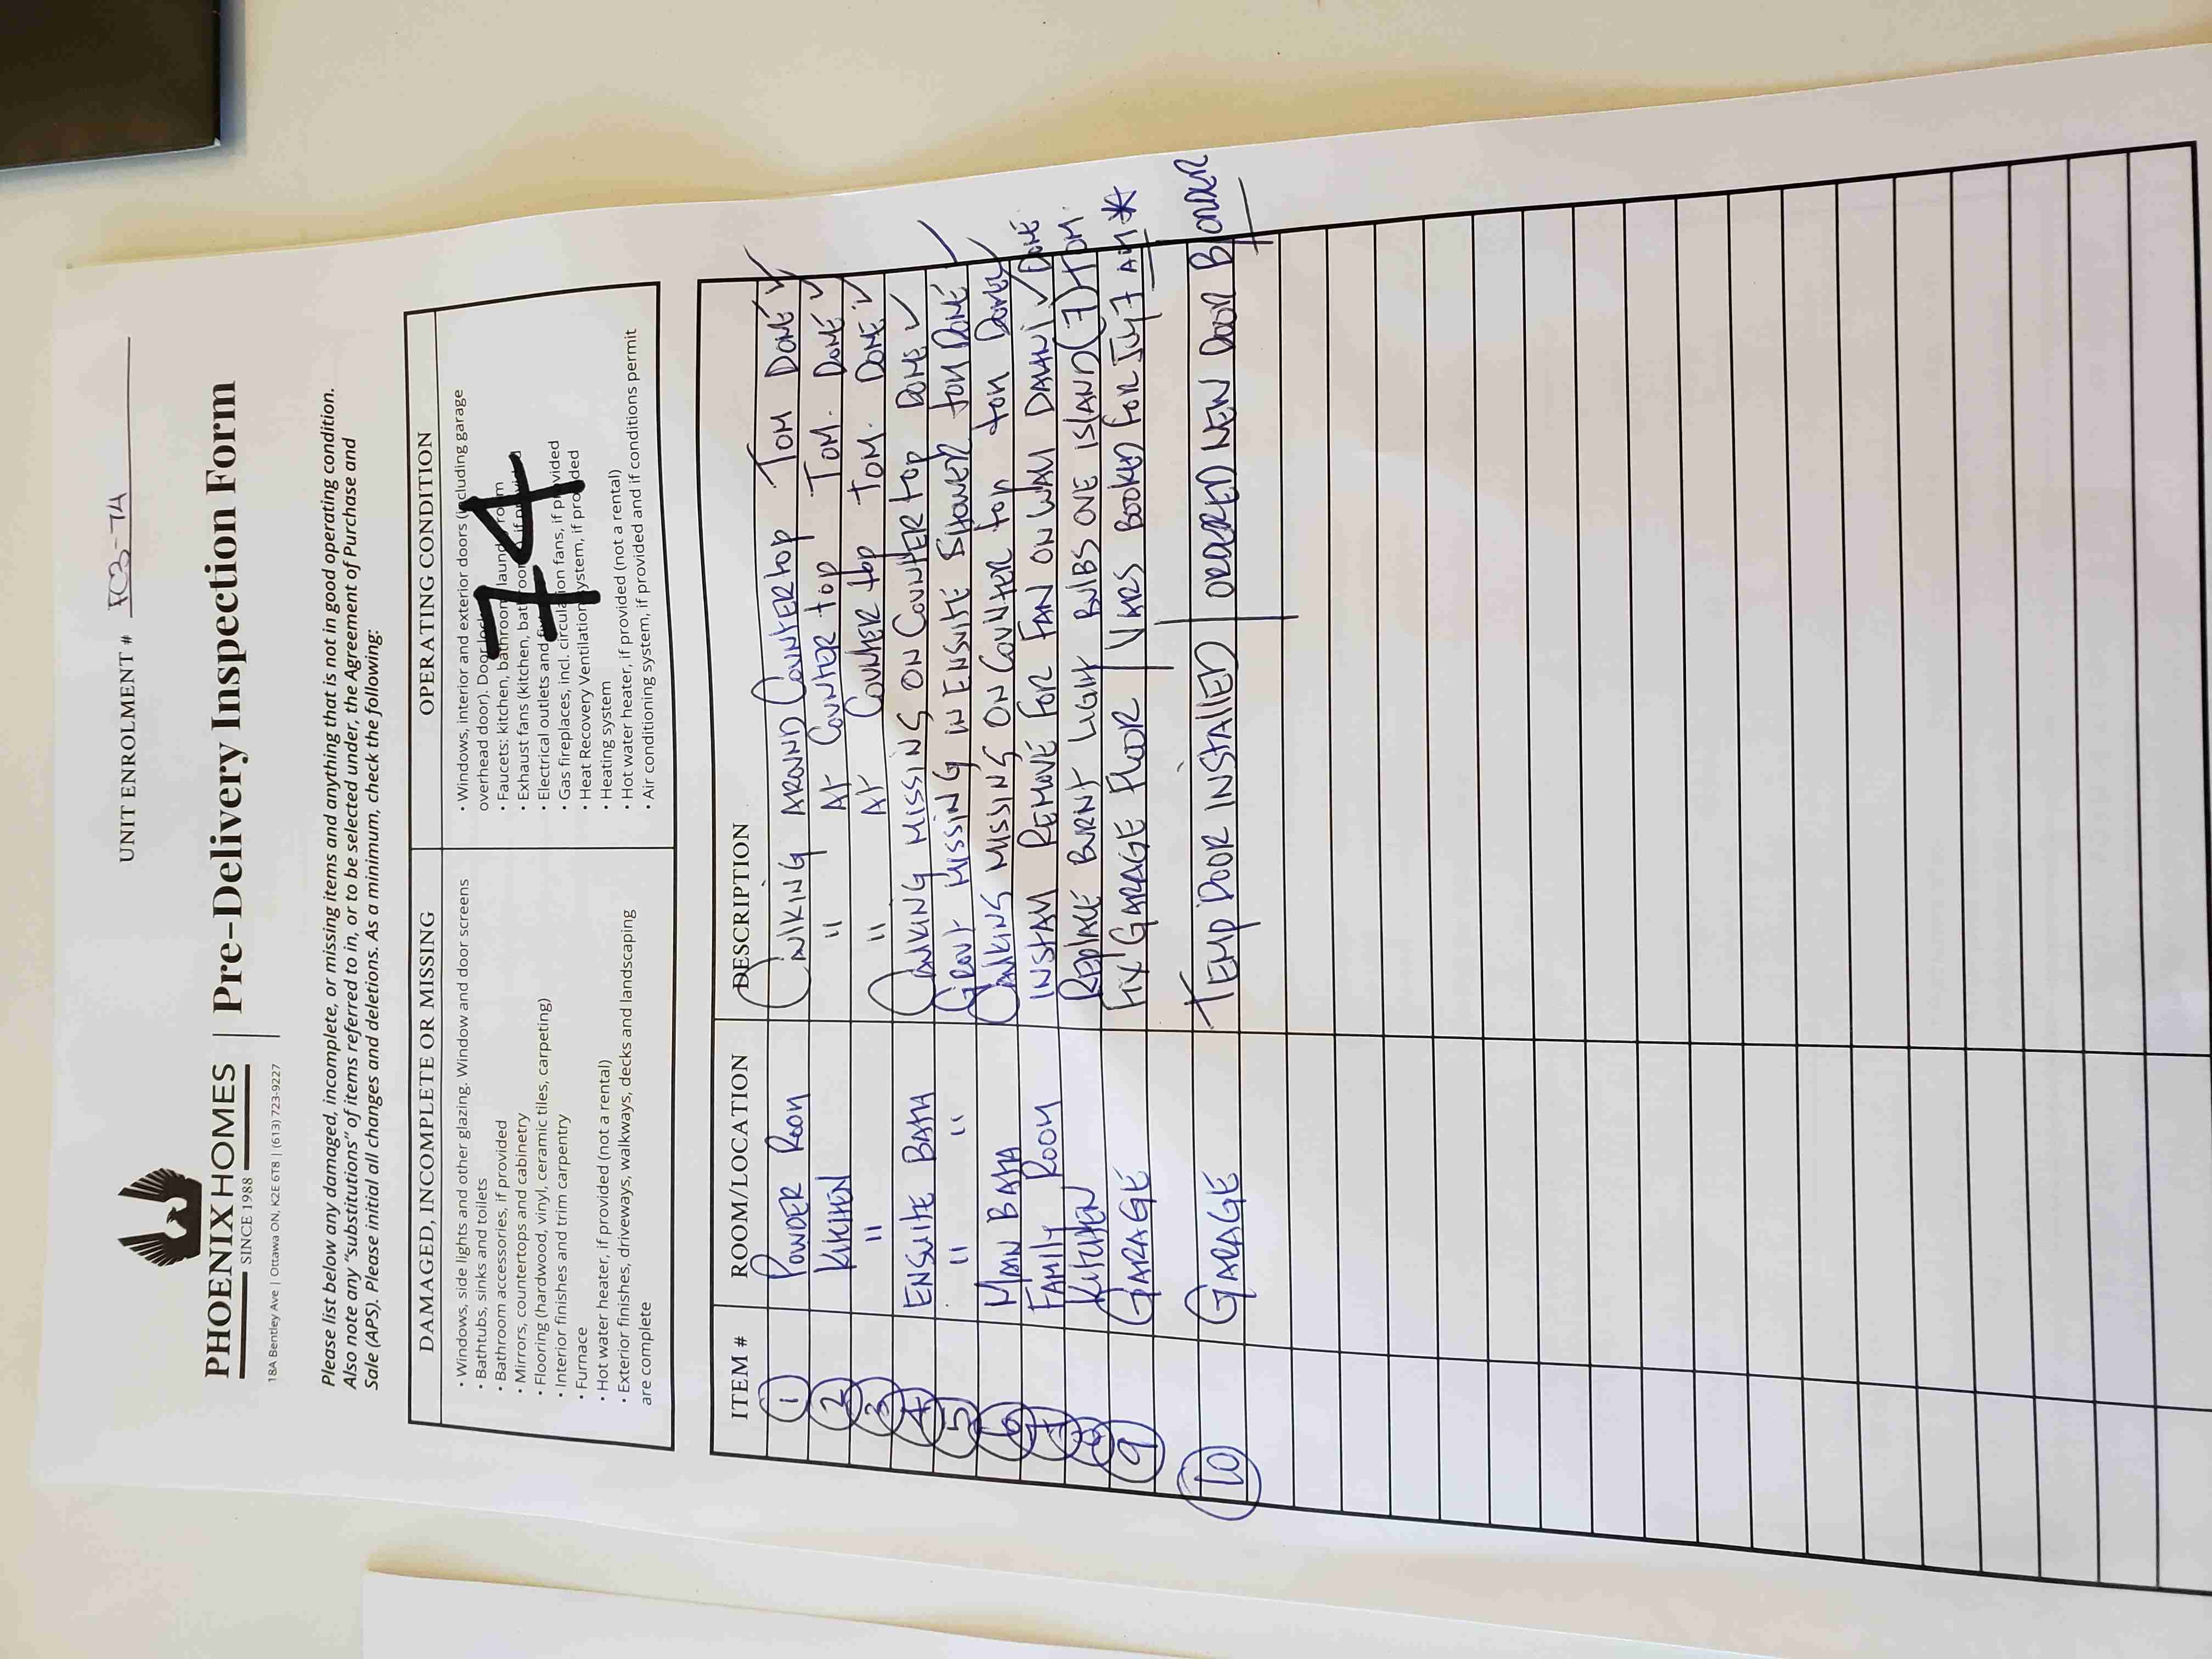 UNIT ENROLMENT # FC3-74
PHOENIX HOMES
SINCE 1988
Pre-Delivery Inspection Form
18A Bentley Ave | Ottawa ON, K2E 6T8 | (613) 723-9227
Please list below any damaged, incomplete, or missing items and anything that is not in good operating condition.
Also note any "substitutions" of items referred to in, or to be selected under, the Agreement of Purchase and
Sale (APS). Please initial all changes and deletions. As a minimum, check the following:
DAMAGED, INCOMPLETE OR MISSING
• Windows, side lights and other glazing. Window and door screens
• Bathtubs, sinks and toilets
• Bathroom accessories, if provided
• Mirrors, countertops and cabinetry
• Flooring (hardwood, vinyl, ceramic tiles, carpeting)
• Interior finishes and trim carpentry
• Furnace
• Hot water heater, if provided (not a rental)
• Exterior finishes, driveways, walkways, decks and landscaping
are complete
OPERATING CONDITION
• Windows, interior and exterior doors (including garage
overhead door). Door locks
• Faucets: kitchen, bathroom, laundry room
• Exhaust fans (kitchen, bathroom) if provided
• Electrical outlets and fixtures
• Gas fireplaces, incl. circulation fans, if provided
• Heat Recovery Ventilation system, if provided
• Heating system
• Hot water heater, if provided (not a rental)
• Air conditioning system, if provided and if conditions permit
74
ITEM # ROOM/LOCATION DESCRIPTION
1 POWDER ROOM CAULKING AROUND COUNTERTOP TOM DONE ✓
2 KITCHEN " AT COUNTER TOP TOM. DONE ✓
3 " " AT COUNTER TOP TOM. DONE ✓
4 ENSUITE BATH CAULKING MISSING ON COUNTER TOP DONE ✓
5 " " GROUT MISSING IN ENSUITE SHOWER TOM DONE ✓
6 MAIN BATH CAULKING MISSING ON COUNTER TOP TOM DONE ✓
7 FAMILY ROOM INSTALL REMOVE FOR FAN ON WALL DAWN ✓ DONE
8 KITCHEN REPLACE BURNT LIGHT BULBS OVE ISLAND (7) TOM.
9 GARAGE FIX GARAGE FLOOR VARS BOOKED FOR July 7 AM *
10 GARAGE TEMP DOOR INSTALLED ORDERED NEW DOOR B ORDER